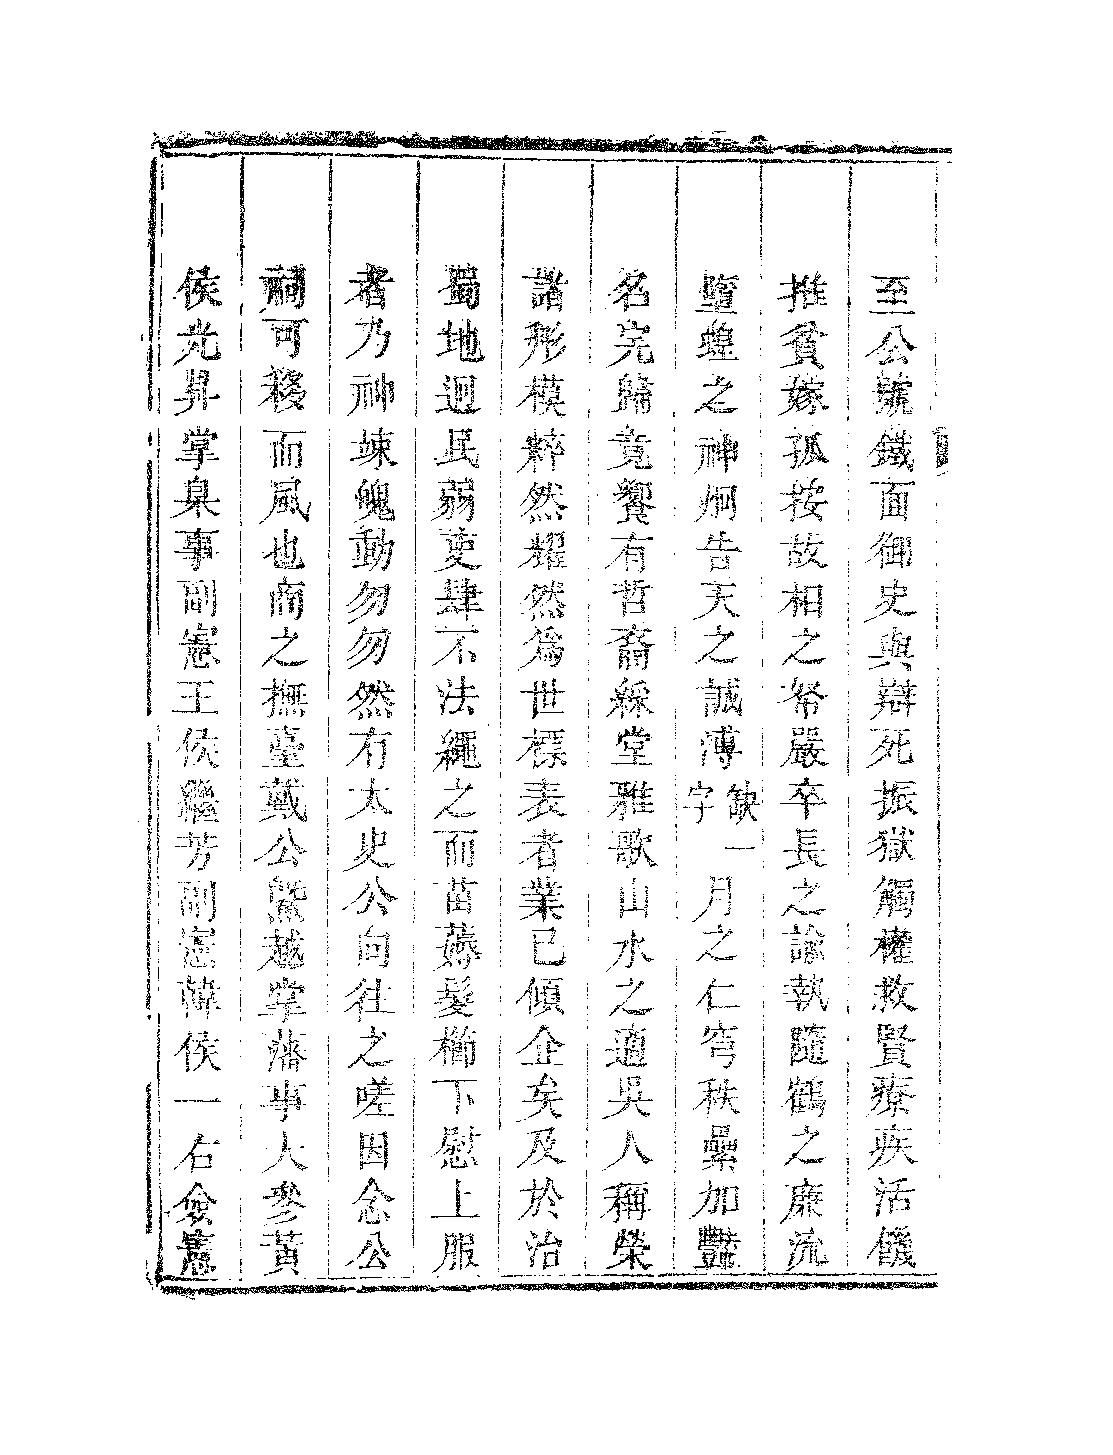 至公號鐵面御史與辯死振獄觸權救賢療疾活饑
推貧嫁孤按故相之帑嚴卒長之諭執隨鶴之廉流
墮蝗之神炯告天之誠溥缺一字月之仁穹秩壘加豔
名完歸竟饗有哲裔綵堂雅歌山水之適吳人稱榮
諸形模粹然耀然為世標表者業已傾企矣及於治
蜀地迥民弱吏肆不法繩之而苗薅髮櫛下慰上服
者乃神竦魄動勿勿然有太史公向往之嗟因念公
祠可移而風也商之撫臺戴公暨越掌藩事大參黃
侯光昇掌臬事副憲王侯繼芳副憲韓侯一右僉憲